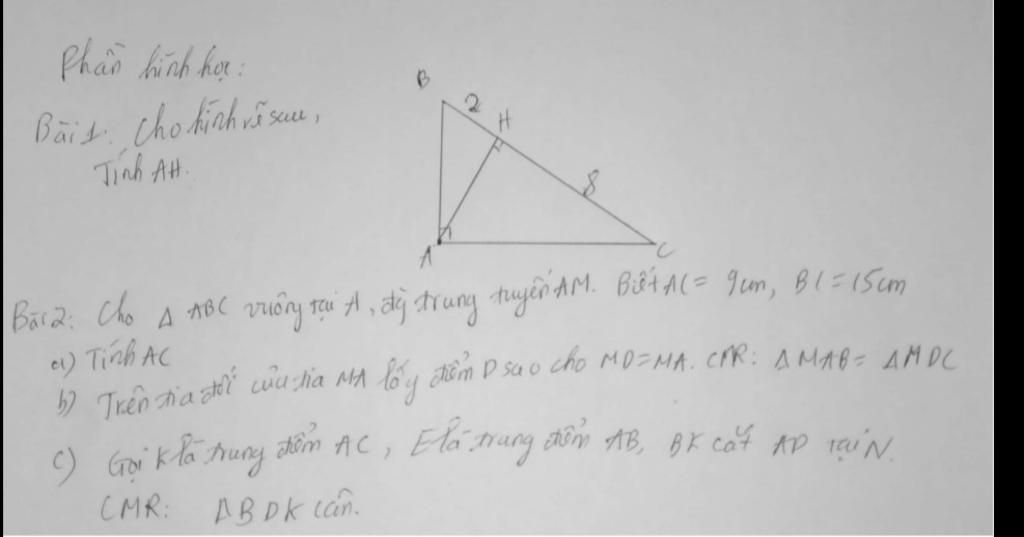 Phần hình học:
Bài 1: Cho hình vẽ sau,
Tính AH.
B
2
H
8
A
C
Bài 2: Cho Δ ABC vuông tại A, đg trung tuyến AM. Biết AC = 9cm, BC = 15cm
a) Tính AC
b) Trên tia đối của tia MA lấy điểm D sao cho MD = MA. CMR: Δ MAB = Δ MDC
c) Gọi K là trung điểm AC, E là trung điểm AB, BK cắt AD tại N.
CMR: Δ BDK cân.